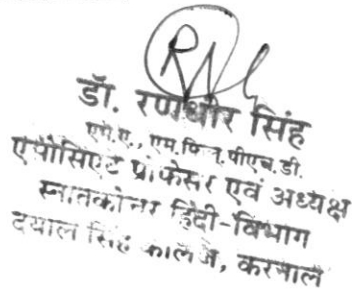 डॉ. रणधीर सिंह
एम.ए., एम.फिल्.पीएच.डी.
एसोसिएट प्रोफेसर एवं अध्यक्ष
स्नातकोत्तर हिंदी-विभाग
दयाल सिंह कालेज, करनाल